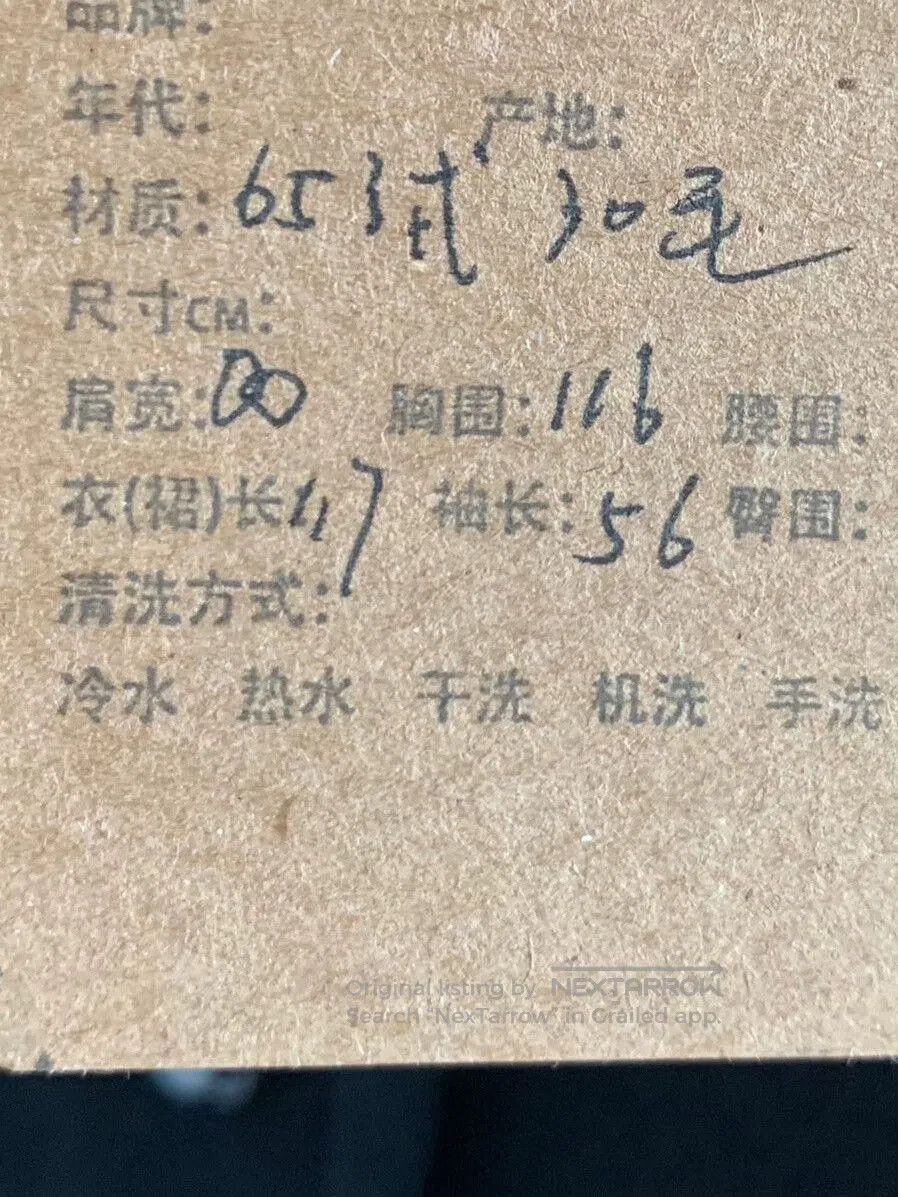 品牌：
年代： 产地：
材质：65 30毛
尺寸CM：
肩宽： 胸围：116 腰围：
衣(裙)长 47 袖长：56 臀围：
清洗方式：
冷水 热水 干洗 机洗 手洗
Original listing by NEXTARROW
Search "NexTarrow" in Grailed app.